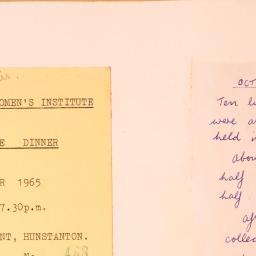 OMEN'S INSTITUTE
E DINNER
R 1965
7.30p.m.
NT, HUNSTANTON.
OCT
Ten li
were a
held i
abou
half
half
af
collec